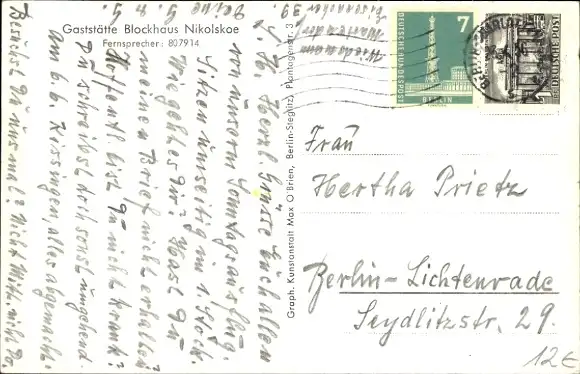 Gaststätte Blockhaus Nikolskoe
Fernsprecher: 807914
L. H. Herzl. Grüsse Euch allen
von unserm Sonntagsausflug.
Sitzen umseitig im 1. Stock.
Wie geht es Dir? Hast Du
meinen Brief nicht erhalten?
Hoffentl. bist Du nicht krank?
Du schreibst doch sonst umgehend.
Am 6.6. Kissingen, alles abgemacht.
Besuchst Du uns mal?
Graph. Kunstanstalt Max O'Brien, Berlin-Steglitz, Plantagenstr. 3
7
DEUTSCHE BUNDESPOST
BERLIN
DEUTSCHE POST
Frau
Hertha Prietz
Berlin-Lichtenrade
Seydlitzstr. 29.
12€